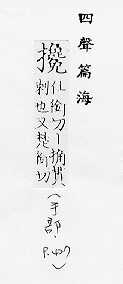 四聲篇海
攙
仕銜刀丨搶貫
刺也又楚銜切
(手部